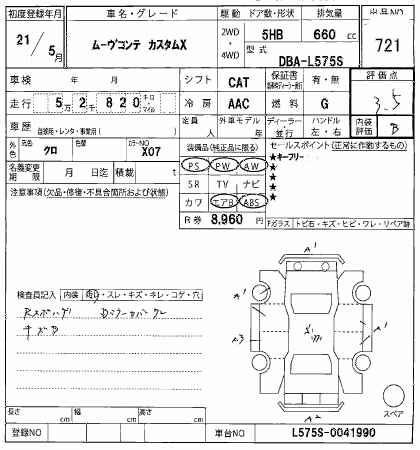 初度登録年月 車名・グレード 駆動 ドア数・形状 排気量 出品NO
21/5月 ムーヴコンテ カスタムX 2WD・4WD 5HB 660 cc 721
型式 DBA-L575S
車検 年 月 シフト CAT 保証書 有・無 評価点 3.5
走行 5万2千820 キロ・マイル 冷房 AAC 燃料 G
車歴 自家用・レンタ・事業用( ) 定員 人 外車モデル 年 ディーラー・並行 ハンドル 左・右 内装評価 B
外色 元色 クロ 色替 カラーNO X07
装備品(純正品に限る) セールスポイント(正常に作動するもの)
名義変更期限 月 日迄 積載 t
PS PW AW ★キーフリー
SR TV ナビ ★
カワ エアB ABS ★
R券 8,960円
注意事項(欠品・修復・不具合箇所および状態)
Fガラス トビ石・キズ・ヒビ・ワレ・リペア跡
A'
A' A'
検査員記入 内装 ・スレ・キズ・キレ・コゲ・穴
A3 A'
キズB
A2
スペア
長さ cm 幅 cm 高さ cm
登録NO 車台NO L575S-0041990